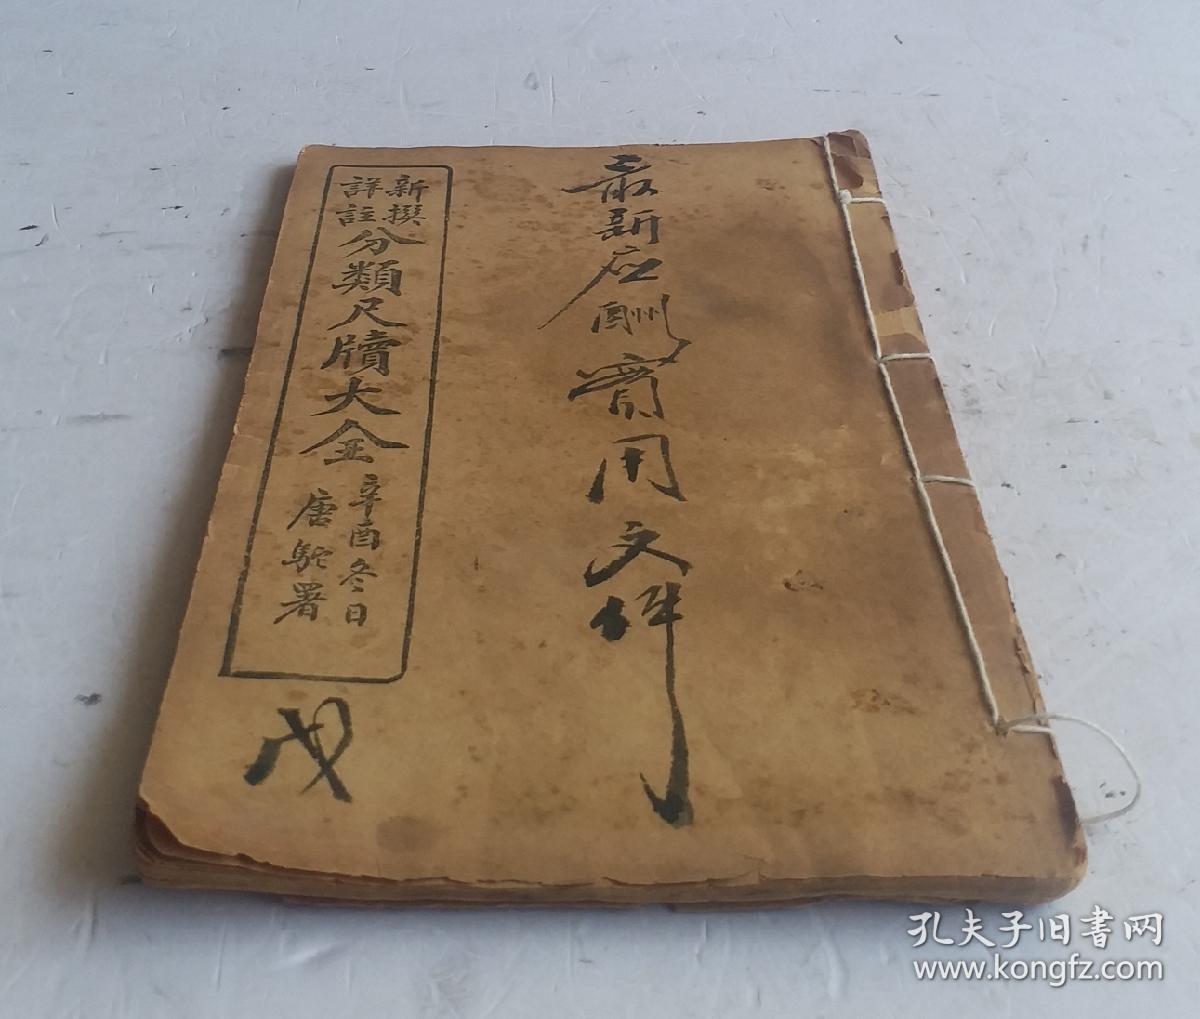 新撰
詳註
分類尺牘大全
辛酉冬日
唐駝署
最新应酬實用文件
戊
孔夫子旧书网
www.kongfz.com